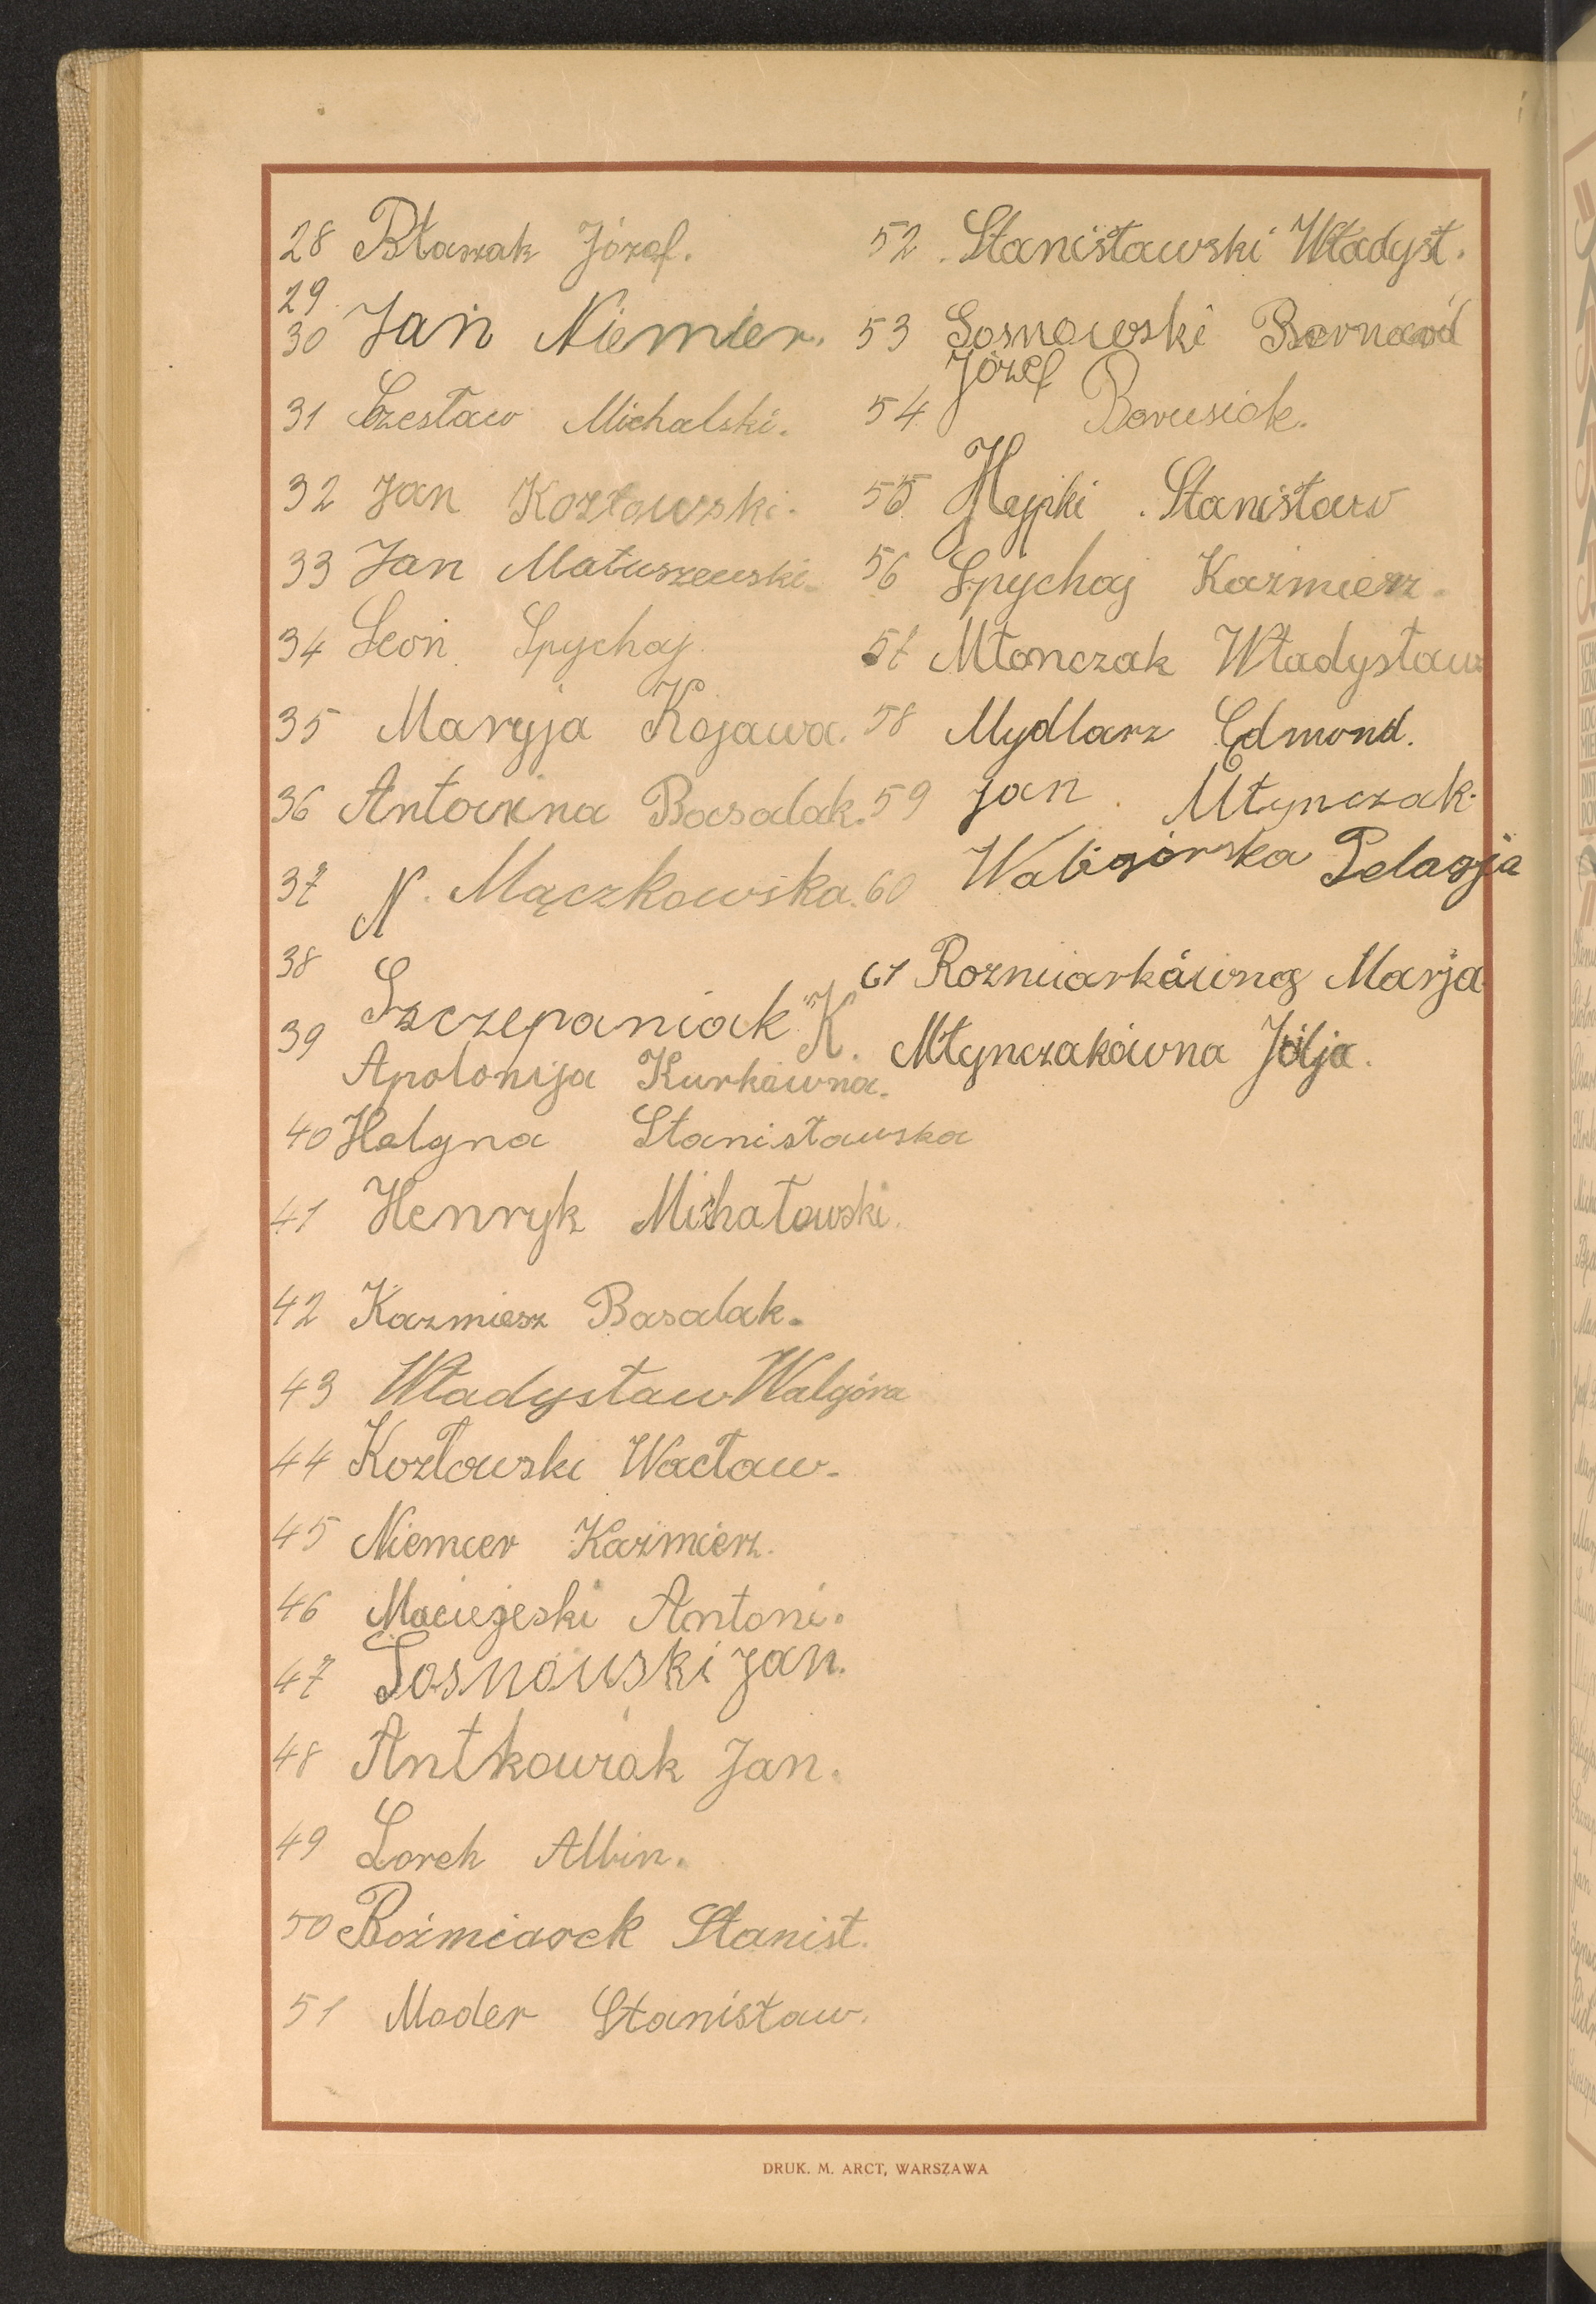 28 Bławak Józef.
29
30 Jan Niemier.
31 Czesław Michalski.
32 Jan Kozłowski.
33 Jan Matuszewski.
34 Leon Spychaj.
35 Maryja Kojawa.
36 Antonina Basalak.
37 N. Mączkowska.
38 Szczepaniak K.
39 Apolonija Kurkówna.
40 Halyna Stanisławska
41 Henryk Michałowski.
42 Kazmiesz Basalak.
43 Władysław Walgóra
44 Kozłowski Wacław.
45 Niemier Kaźmierz.
46 Maciejeski Antoni.
47 Sosnowski Jan.
48 Antkowiak Jan.
49 Lorek Albin.
50 Roźmiarek Stanisł.
51 Moder Stanisław.
52. Stanisławski Władysł.
53 Sosnowski Bernard
54 Józef Borusiak.
55 Hypki Stanisław
56 Spychaj Kaźmierz.
57 Młonczak Władysław
58 Mydlarz Edmond.
59 Jan Młynczak.
60 Waligórska Pelagja
61 Rozmiarkówna Marja
Młynczakówna Julja.
DRUK. M. ARCT, WARSZAWA